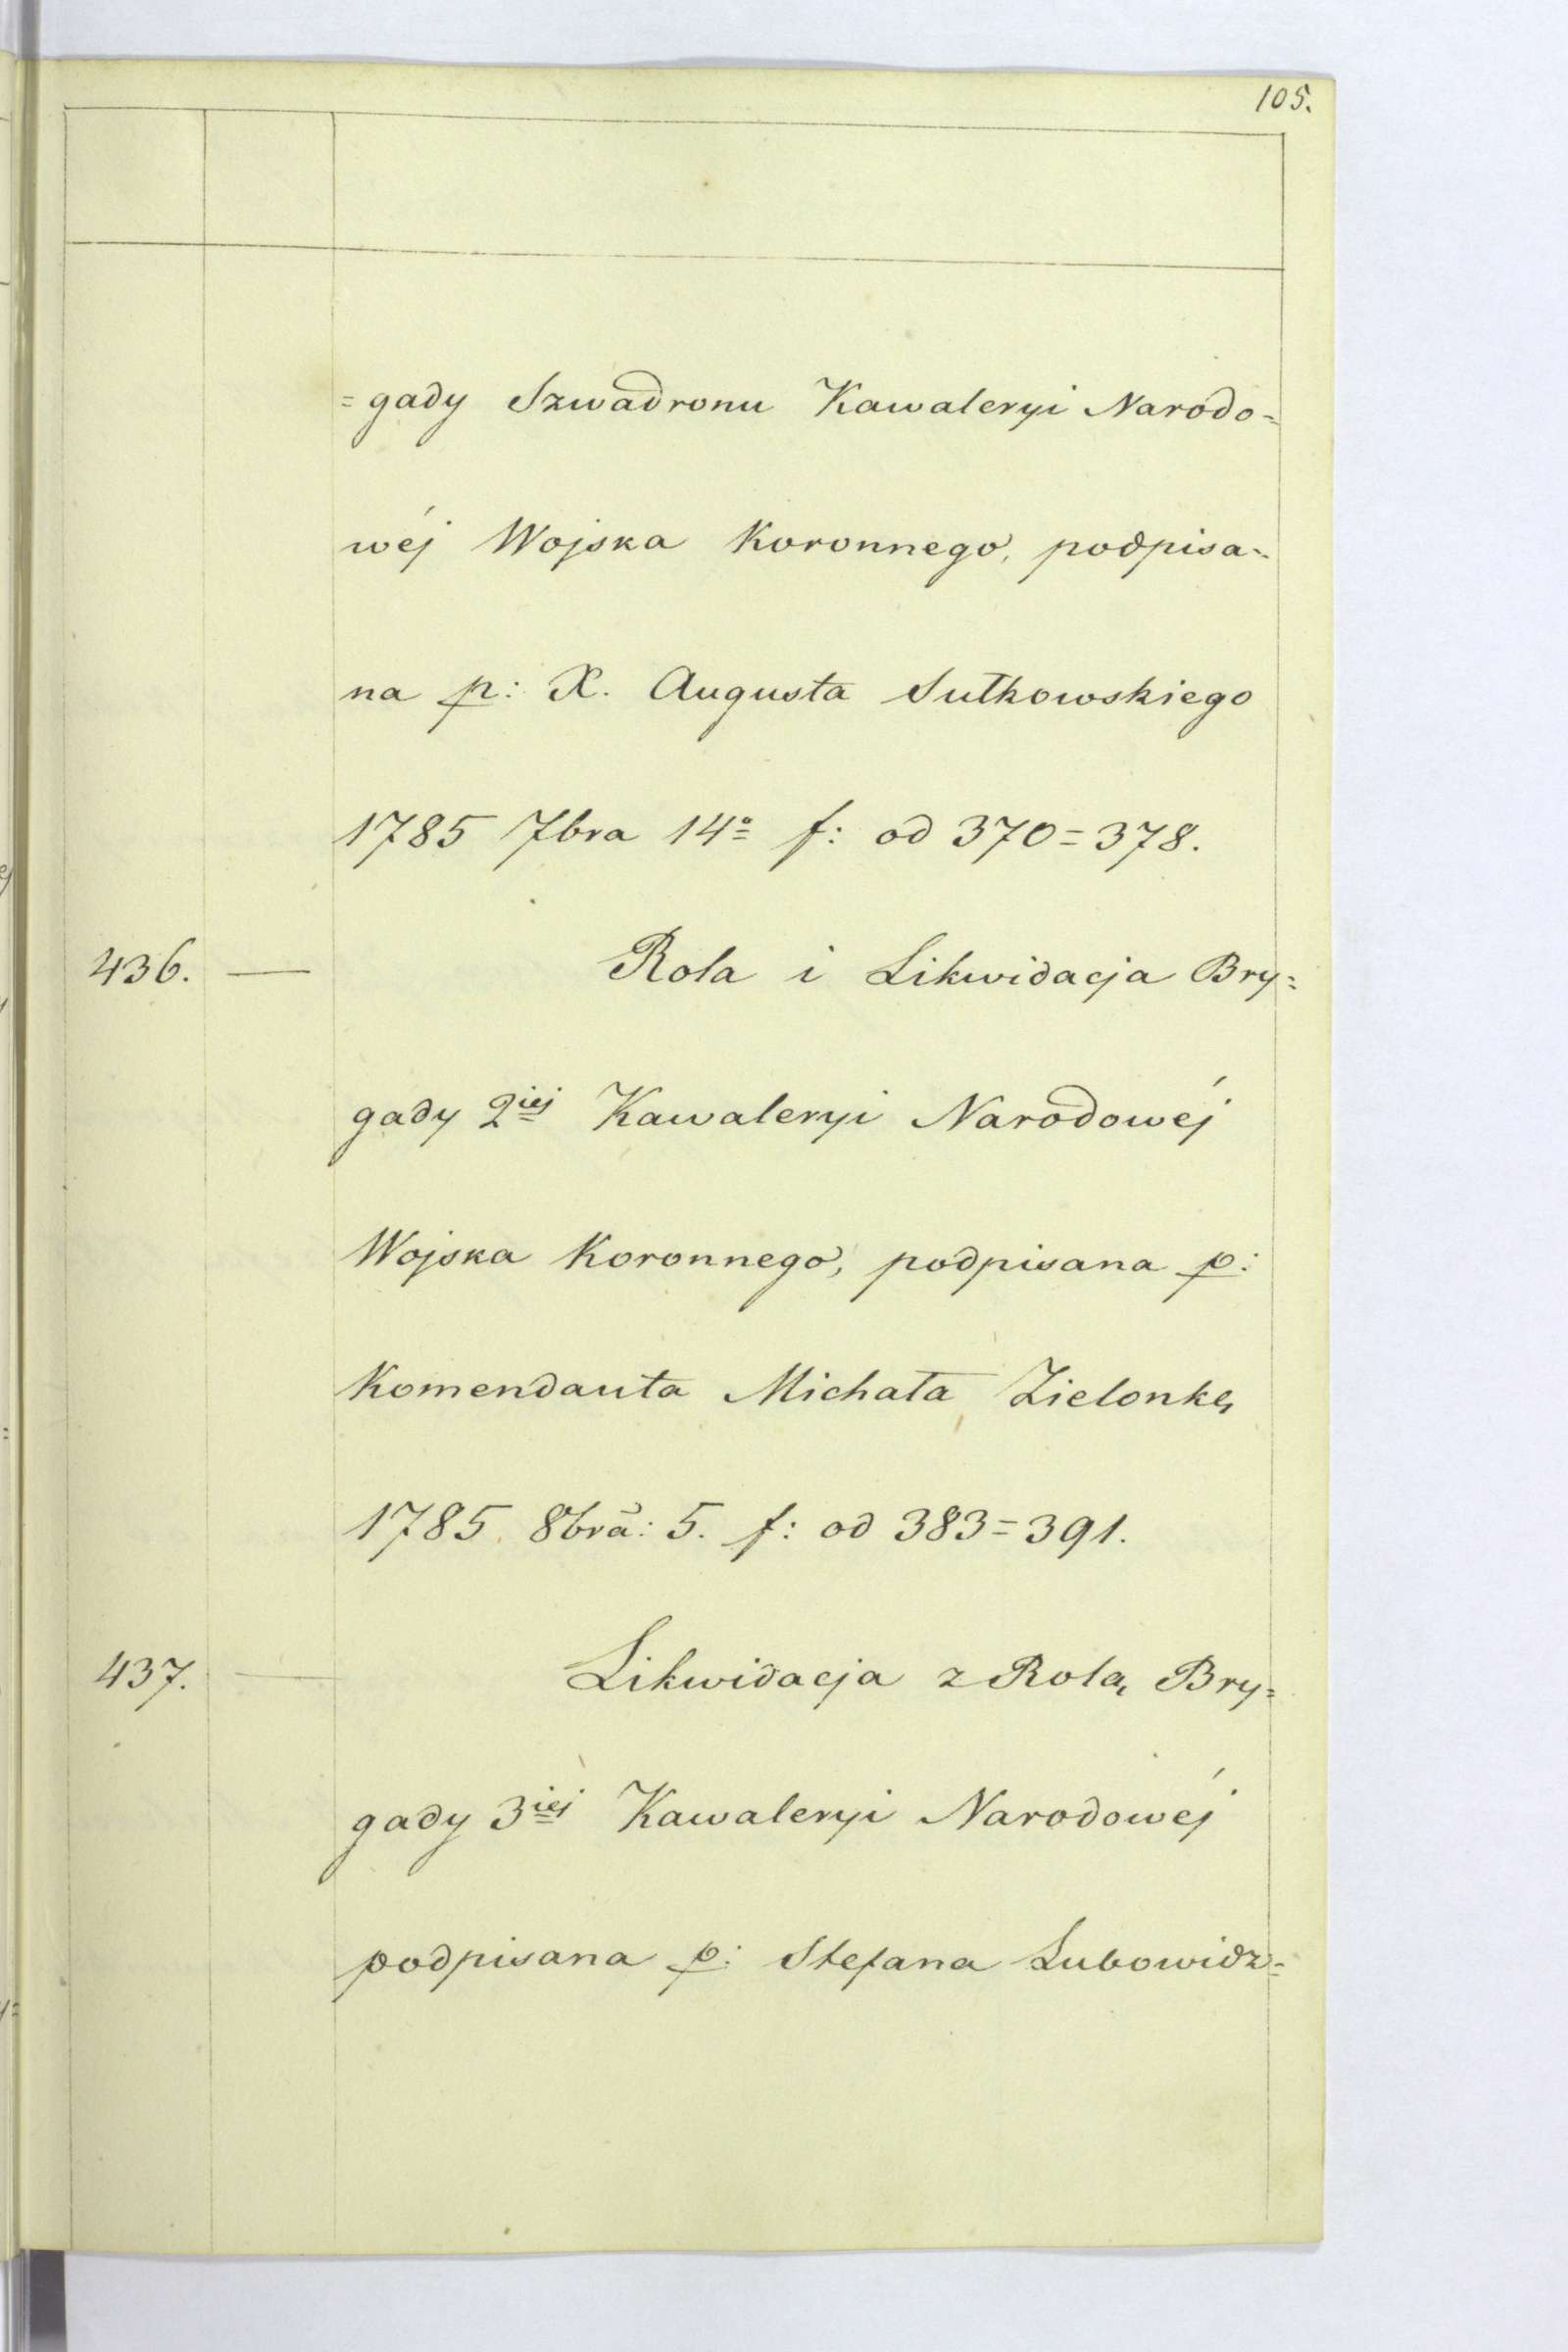 105.
=gady Szwadronu Kawaleryi Narodo=
wéj Wojska Koronnego, podpisa=
na p: X. Augusta Sułkowskiego
1785 7bra 14° f: od 370=378.
436. — Rola i Likwidacja Bry=
gady 2iej Kawaleryi Narodowéj
Wojska Koronnego, podpisana p:
Komendanta Michała Zielonkę
1785 8bra: 5. f: od 383=391.
437. — Likwidacja z Rolą Bry=
gady 3iej Kawaleryi Narodowéj
podpisana p: Stefana Lubowidz=